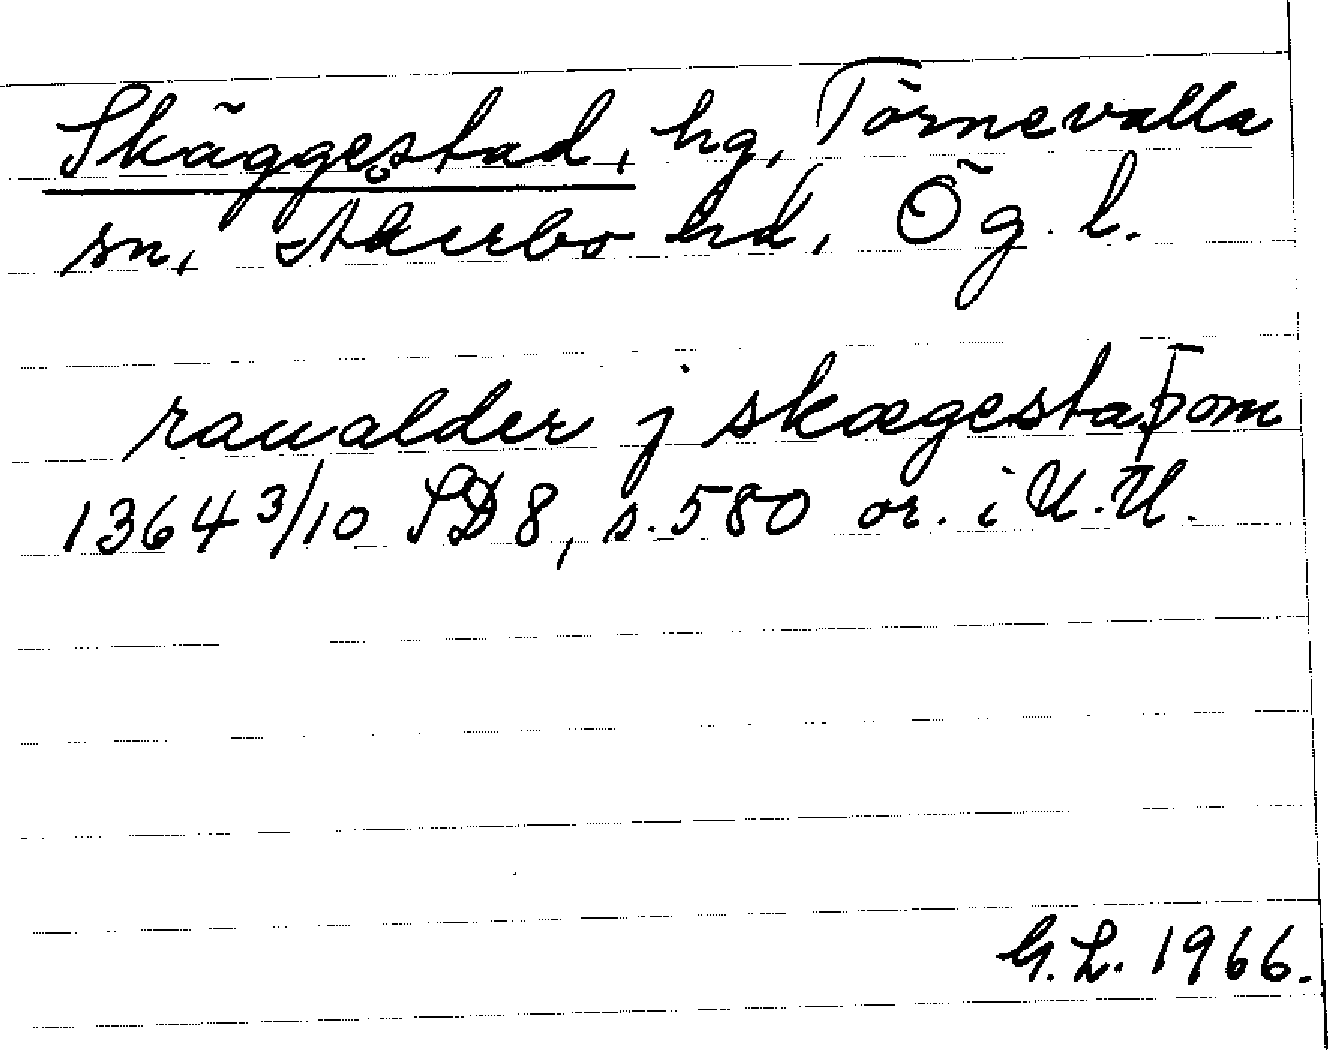 Skäggestad, hg, Törnevalla
sn, Åkerbo hd, Ög. l.
raualder j skægestaþom
1364 3/10 SD 8, s. 580 or. i U.U.
G.L. 1966.